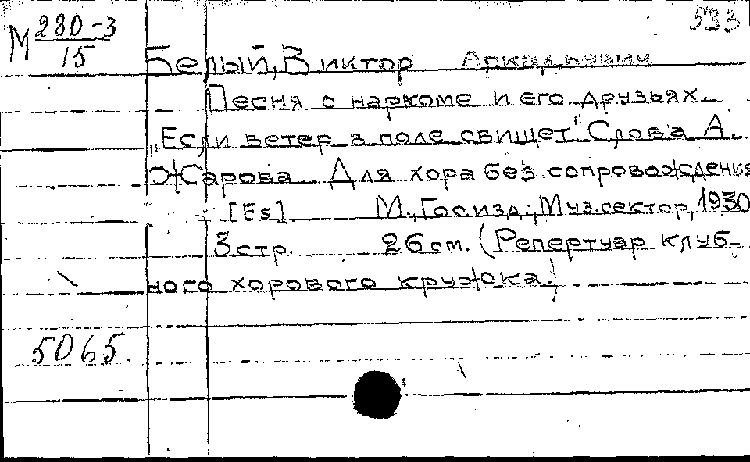 593
М 280-3
15
Белый, Виктор Аркадьевич
Песня о наркоме и его друзьях.
"Если ветер в поле свищет" Слова А.
Жарова. Для хора без сопровождения
[Es]. М., Госизд; Муз.сектор, 1930
3 стр. 26 см. (Репертуар клуб-
ного хорового кружка.)
5065.